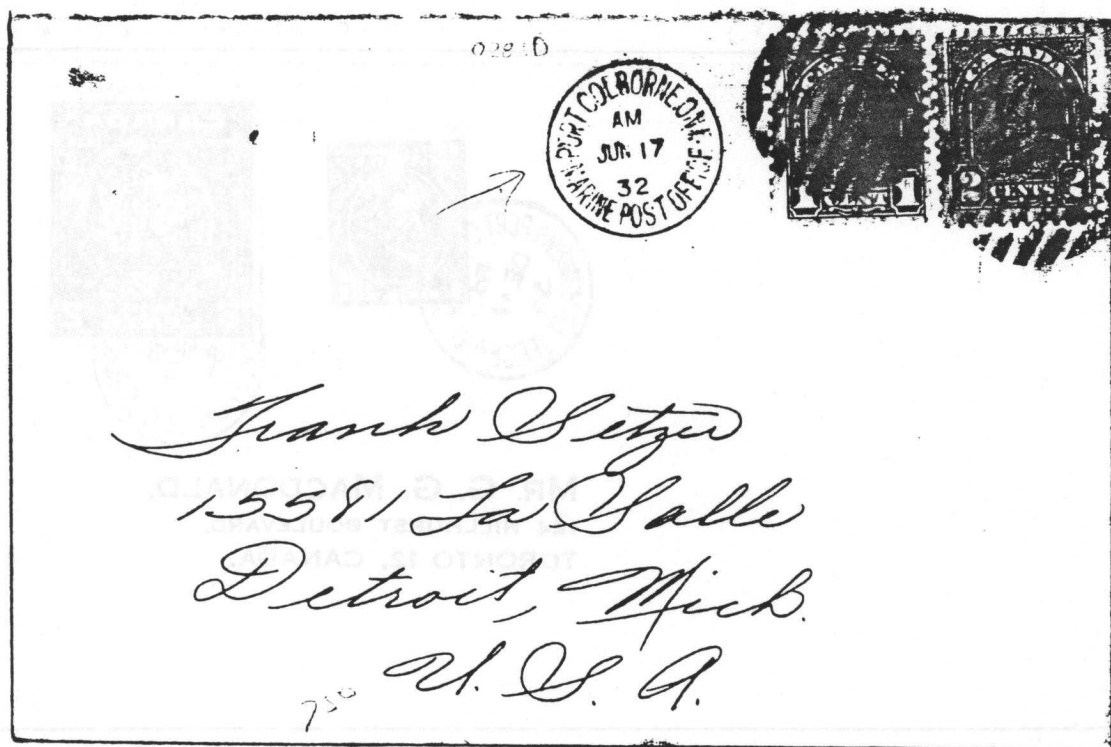 PORT COLBORNE. ONT.
AM
JUN 17
32
MARINE POST OFFICE
CANADA
1 CENT 1
2 CENTS 2
Frank Setzer
15581 La Salle
Detroit, Mich.
U. S. A.
MR. G. G. MACDONALD,
BOULEVARD,
TORONTO 12, CANADA.
750